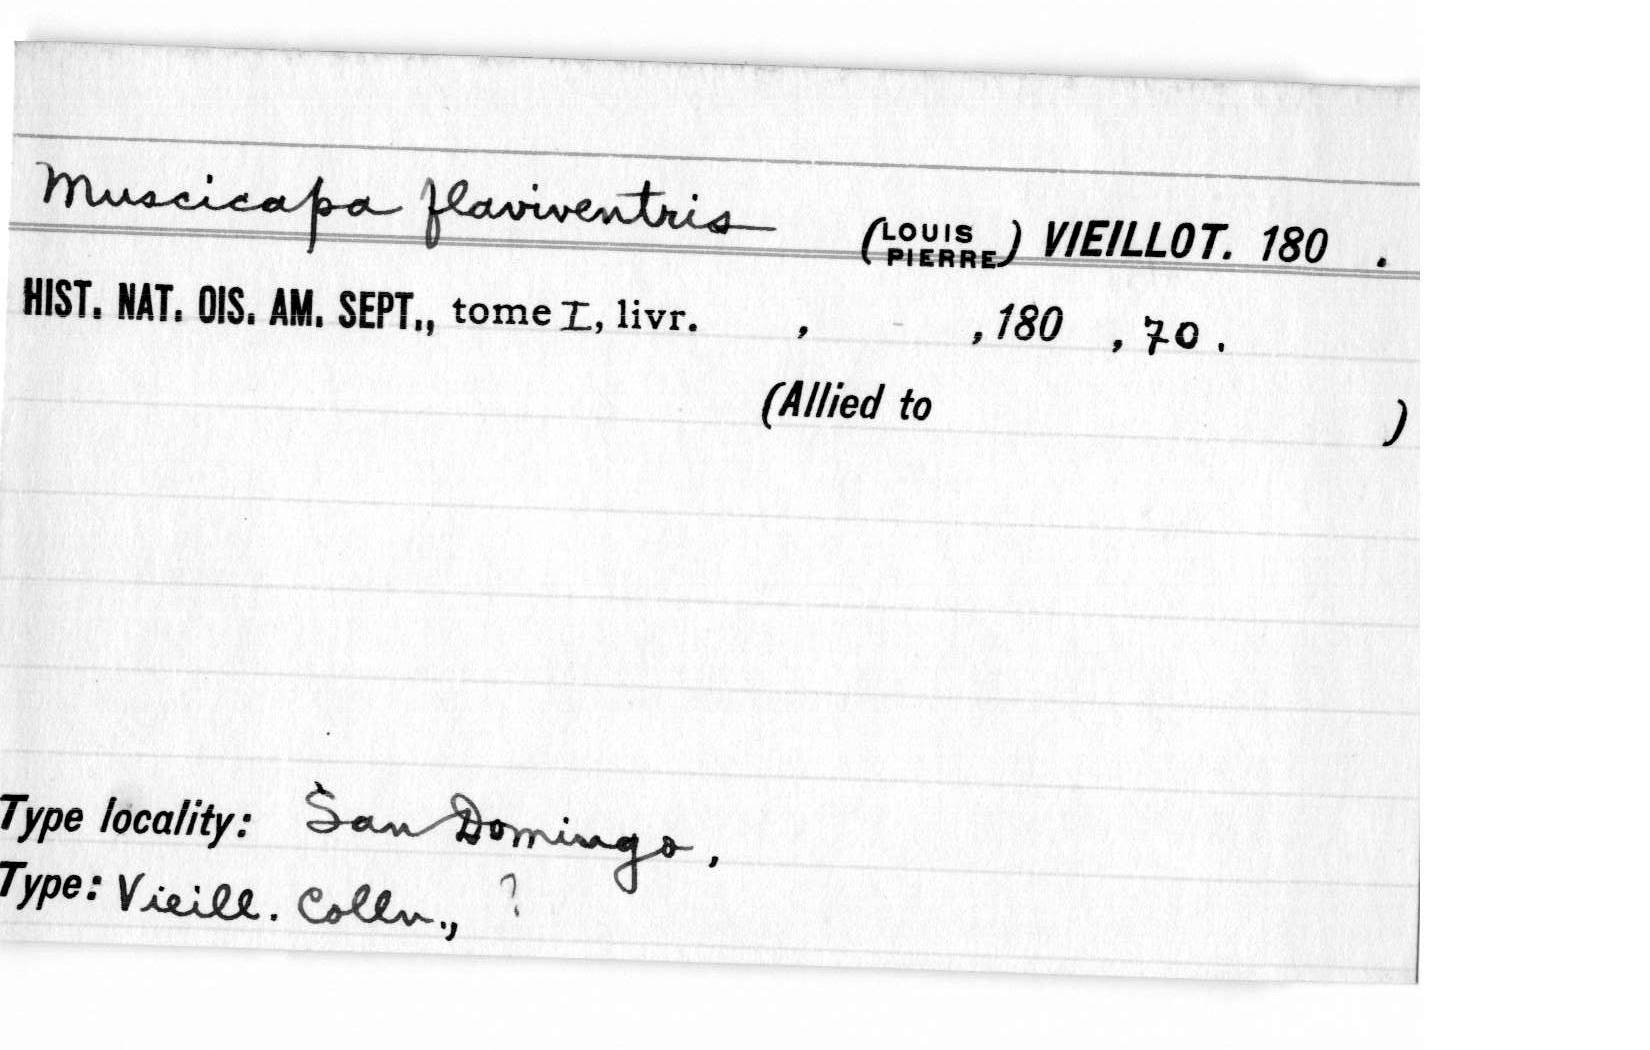 Muscicapa flaviventris (LOUIS PIERRE) VIEILLOT. 180 .
HIST. NAT. OIS. AM. SEPT., tome I, livr. , , 180 , 70.
(Allied to )
Type locality: San Domingo,
Type: Vieill. Colln., ?